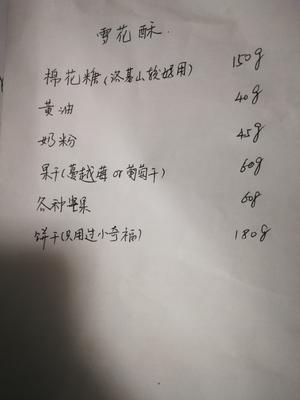 雪花酥.
棉花糖(洛基山较好用) 150g
黄油 40g
奶粉 45g
果干(蔓越莓or葡萄干) 60g
各种坚果 60g
饼干(只用过小奇福) 180g